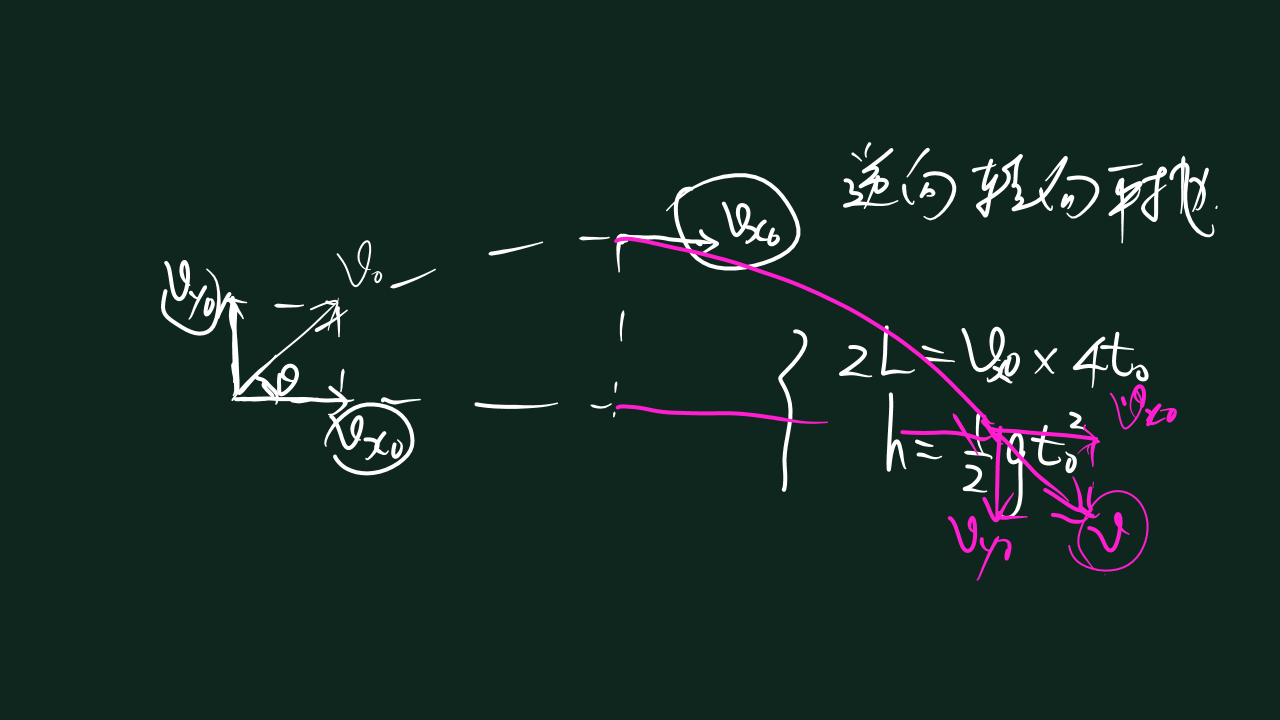 逆向转为平抛
v_{x0}
v_0
v_{y0}
θ
v_{x0}
2L = v_{x0} × 4t_0
h = \frac{1}{2} g t_0^2
v_{x0}
v_{y0}
v